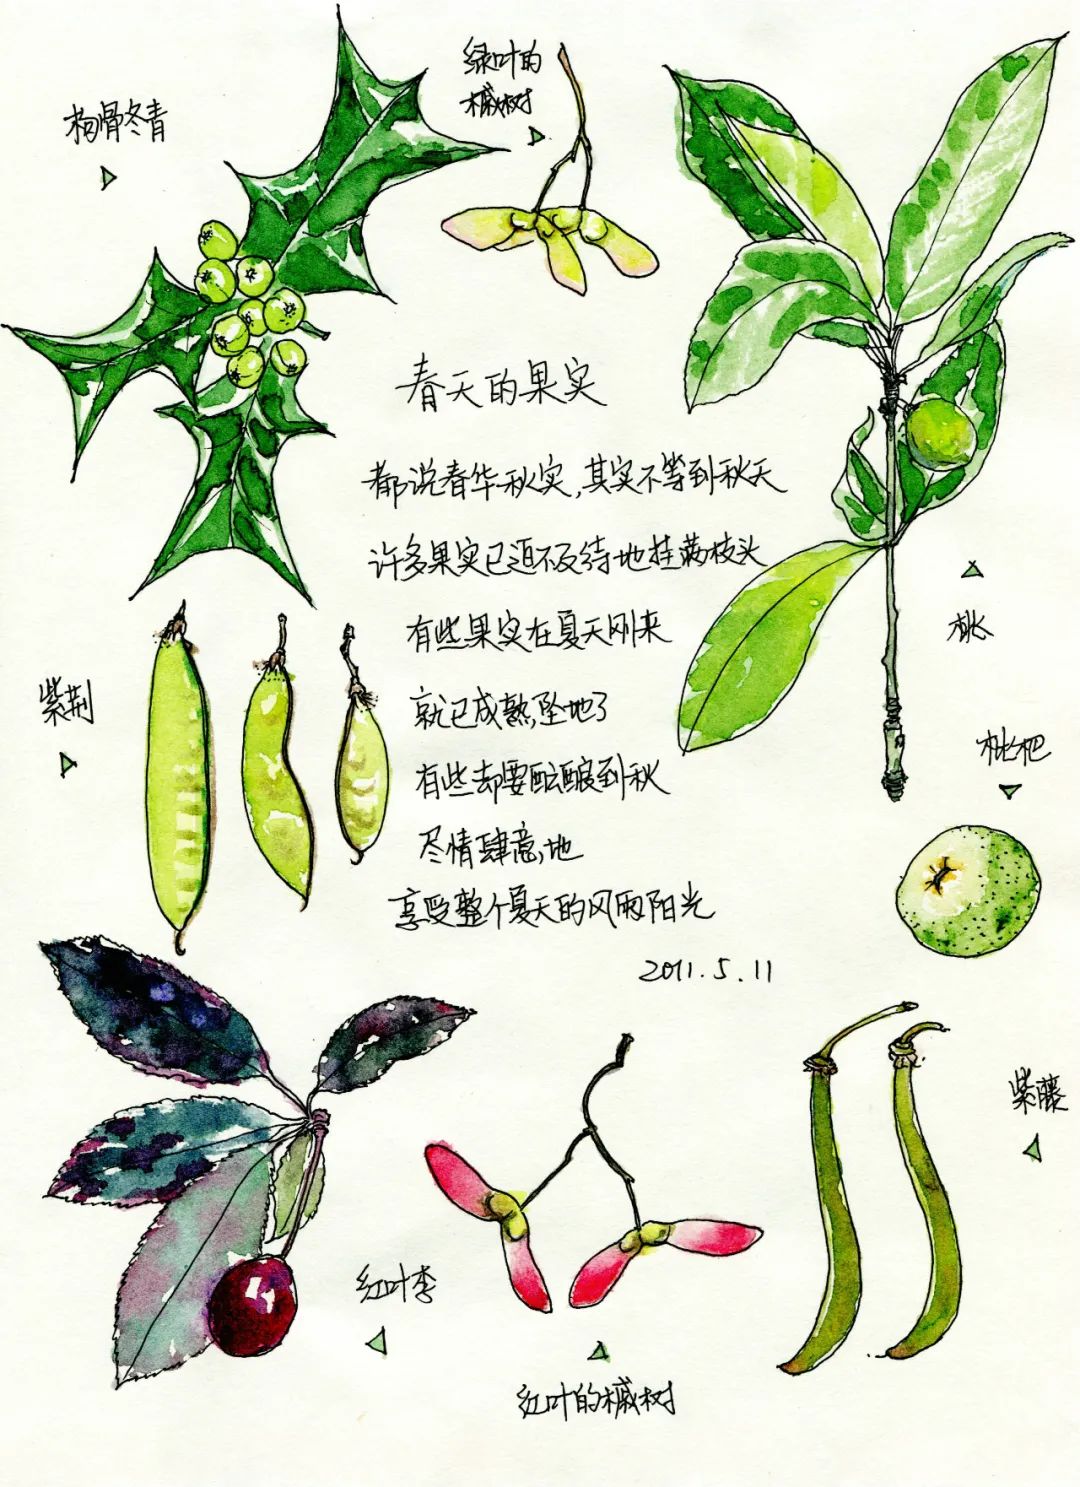 枸骨冬青
绿叶的
槭树
春天的果实
都说春华秋实,其实不等到秋天
许多果实已迫不及待地挂满枝头
有些果实在夏天刚来
就已成熟,坠地了
有些却要酝酿到秋
尽情肆意,地
享受整个夏天的风雨阳光
2011.5.11
桃
枇杷
紫荆
紫藤
红叶李
红叶的槭树